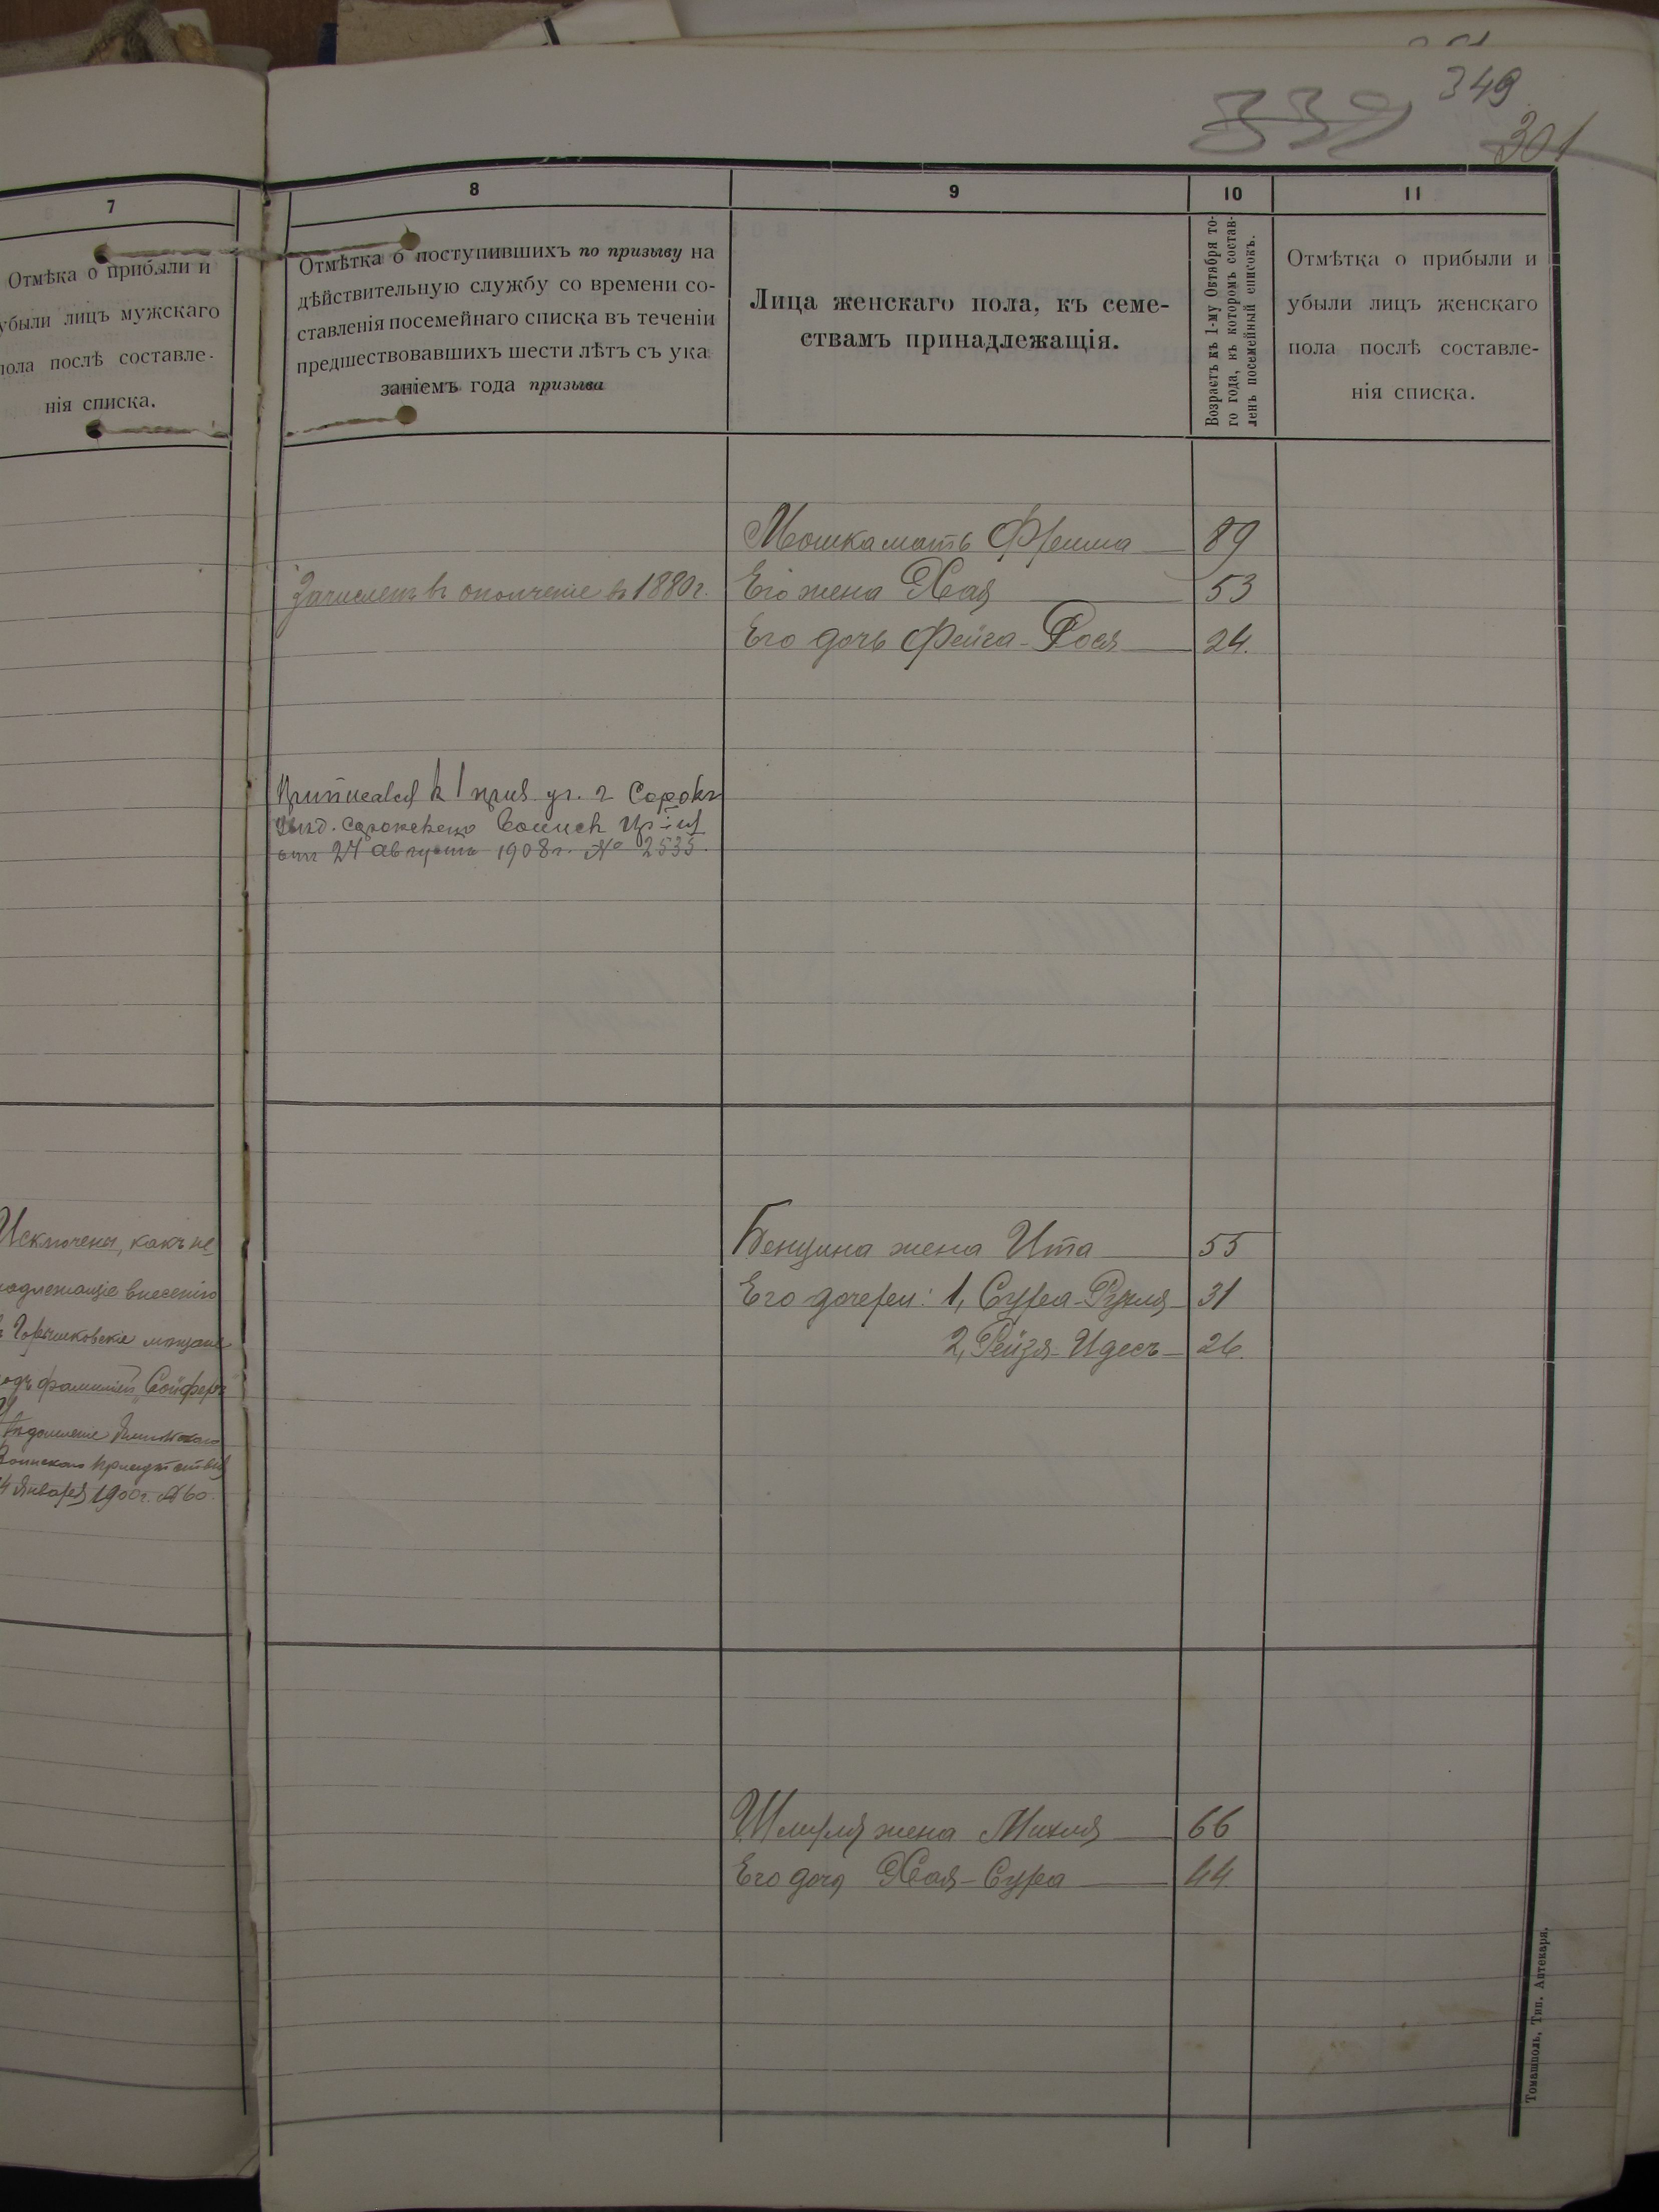 349
339
301
7
8
9
10
11
Отмѣка о прибыли и
убыли лицъ мужскаго
пола послѣ составле-
нія списка.
Отмѣтка о поступившихъ по призыву на
дѣйствительную службу со времени со-
ставленія посемейнаго списка въ теченіи
предшествовавшихъ шести лѣтъ съ ука
заніемъ года призыва
Лица женскаго пола, къ семе-
ствамъ принадлежащія.
Возрастъ къ 1-му Октября то-
го года, въ которомъ состав-
ленъ посемейный списокъ.
Отмѣтка о прибыли и
убыли лицъ женскаго
пола послѣ составле-
нія списка.
Мошка мать Фрима 89
Зачисленъ въ ополченіе въ 1880 г.
Его жена Хая 53
Его дочь Фейга-Рося 24.
Приписался к 1 приз. уч. г Сороки
Сорокскаго Воинск
от 27 августа 1908 г. № 2535.
Исключены, какъ не
подлежащіе внесенію
мѣщане
подъ фамиліей „Сойферъ
Воинскаго присутствія
4 Января 1900 г. № 60.
Бенциана жена Ита 55
Его дочери: 1, Сура-Рухля 31
2, Рейзя-Идесъ 26.
Шмуля жена Михля 66
Его дочь Хая-Сура 44
Томашполь, Тип. Аптекаря.